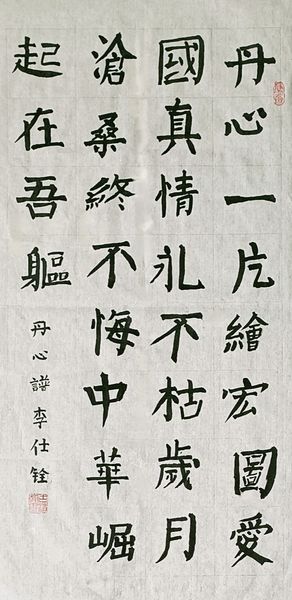 丹心一片繪宏圖愛
國真情永不枯歲月
滄桑終不悔中華崛
起在吾軀
丹心譜李仕铨